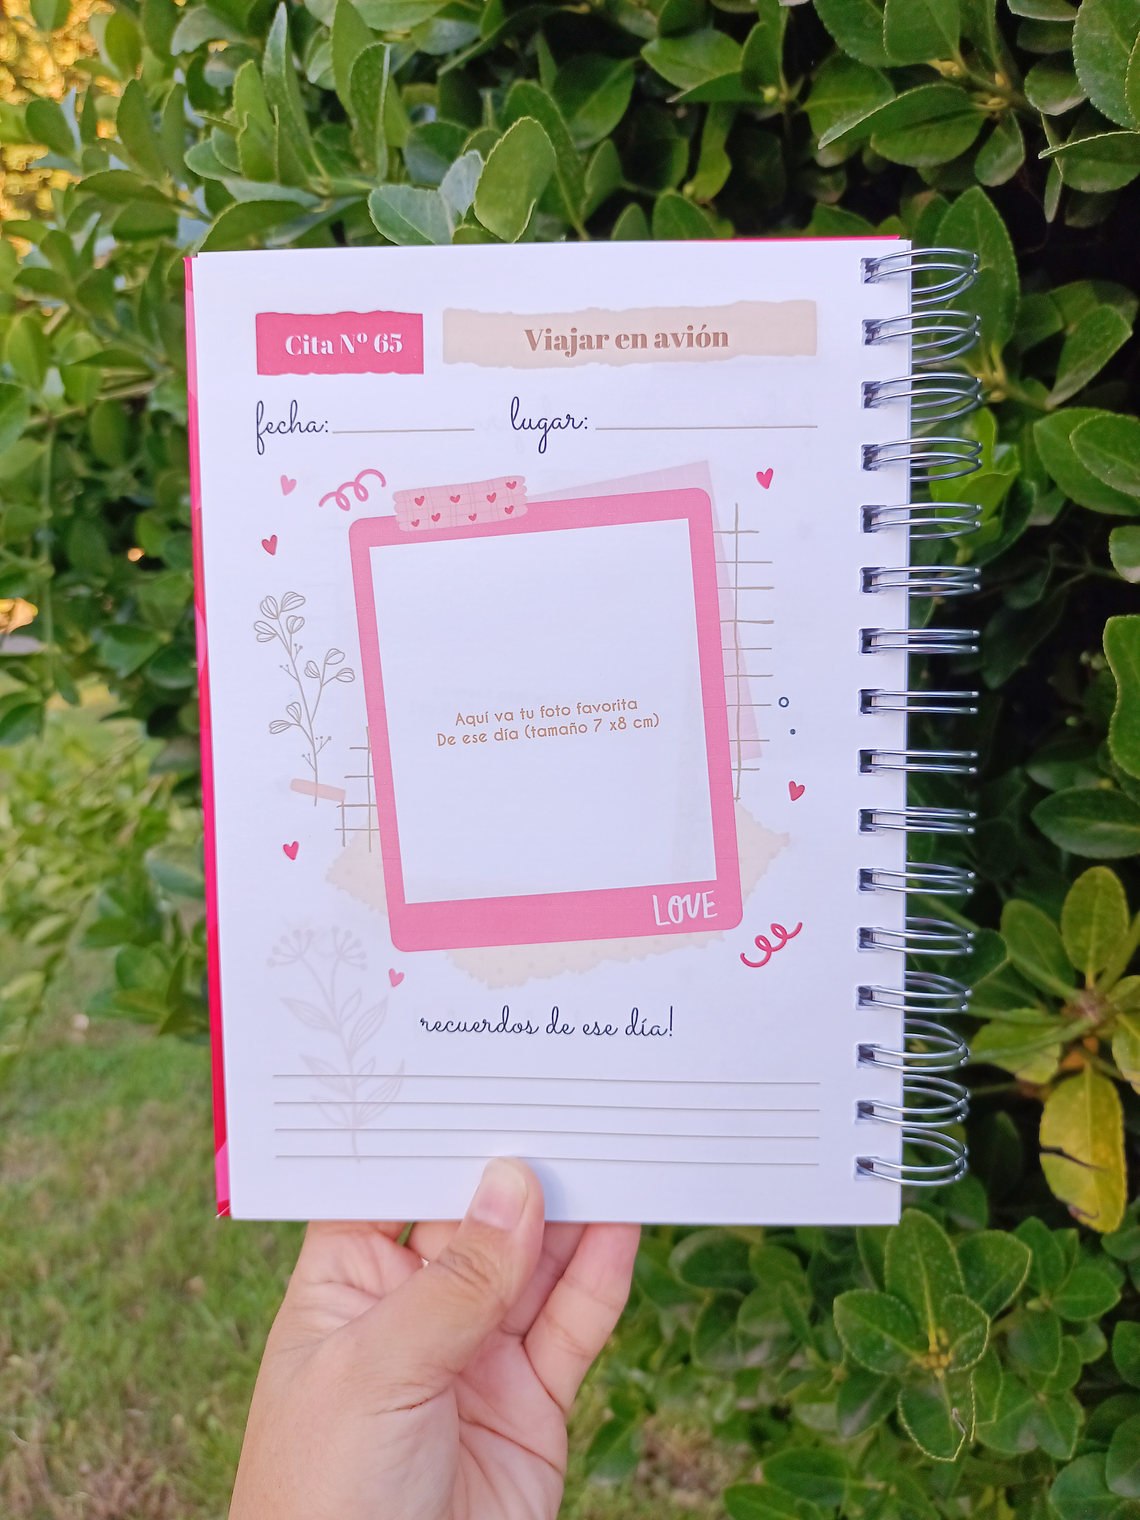 Cita Nº 65
Viajar en avión
fecha:
lugar:
Aquí va tu foto favorita
De ese día (tamaño 7 x8 cm)
LOVE
recuerdos de ese día!